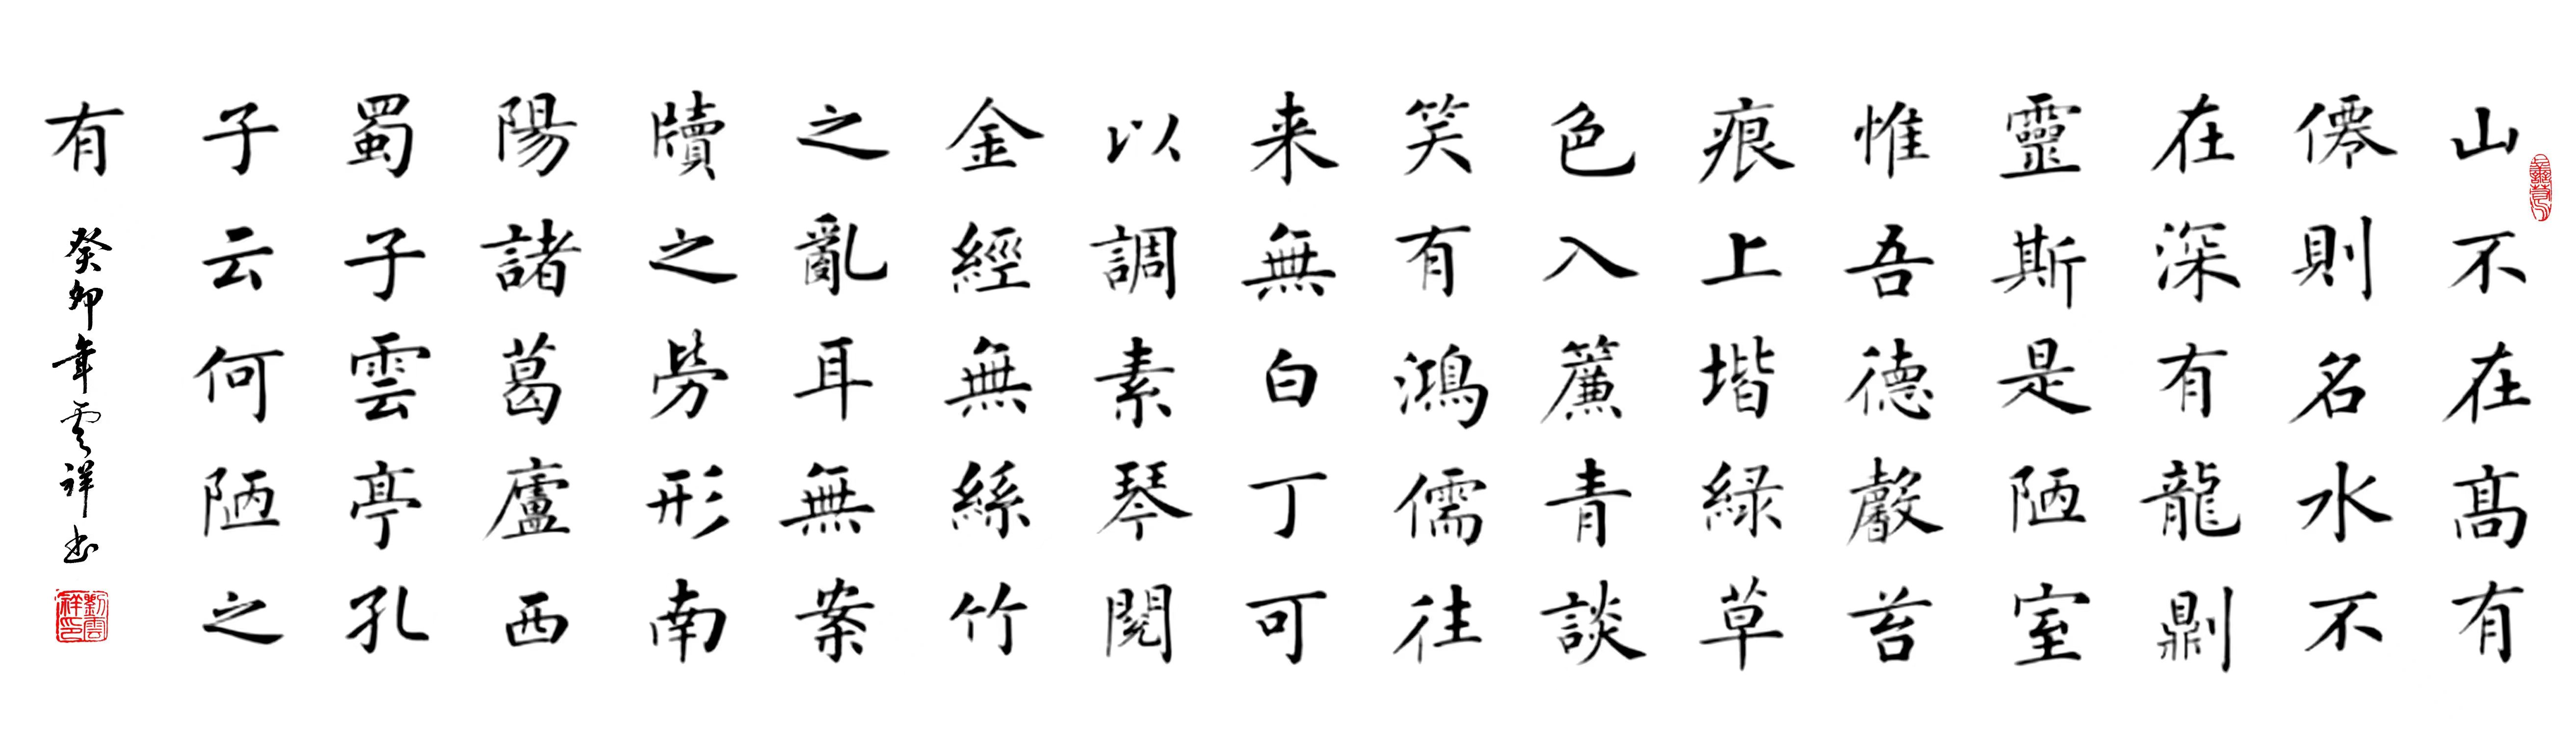 山不在高有
僊則名水不
在深有龍則
靈斯是陋室
惟吾德馨苔
痕上堦緑草
色入簾青談
笑有鴻儒往
来無白丁可
以調素琴閱
金經無絲竹
之亂耳無案
牘之勞形南
陽諸葛廬西
蜀子雲亭孔
子云何陋之
有
癸卯年雲祥書
劉雲祥印